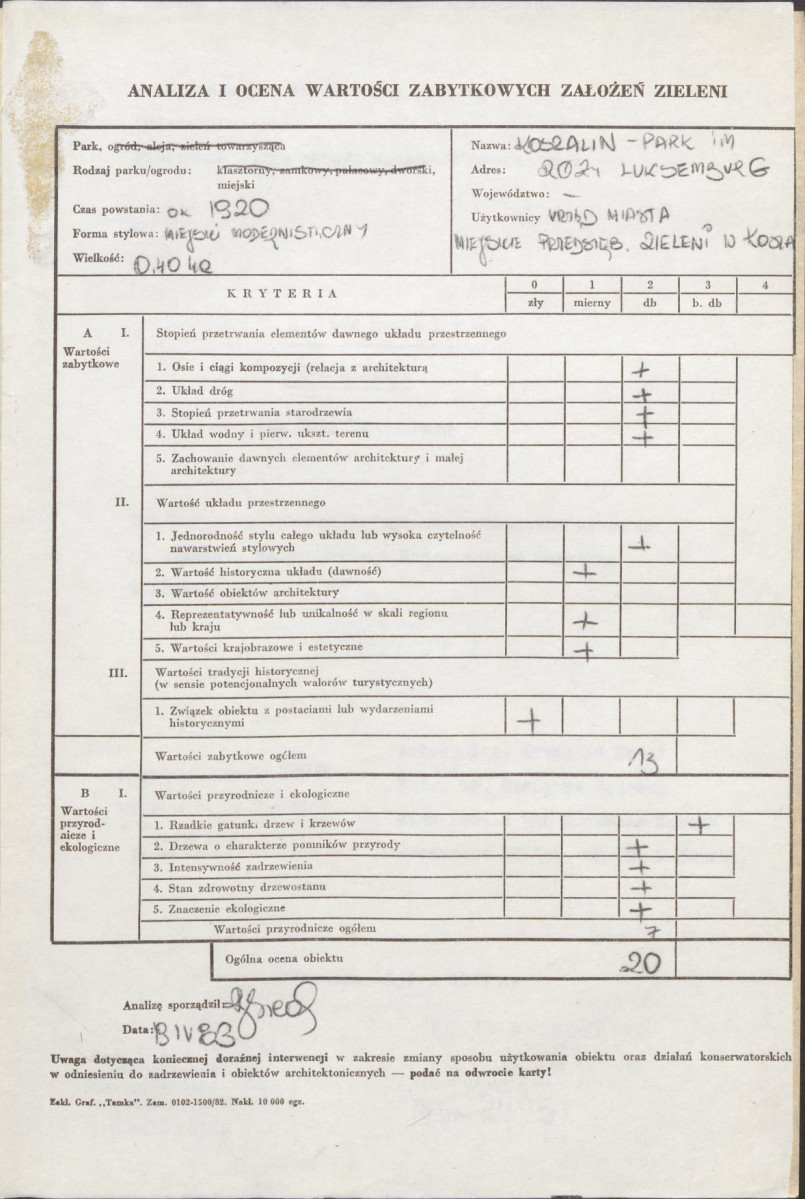 ANALIZA I OCENA WARTOŚCI ZABYTKOWYCH ZAŁOŻEŃ ZIELENI
Park, ogród, aleja, zieleń towarzysząca
Rodzaj parku/ogrodu: klasztorny, zamkowy, pałacowy, dworski,
miejski
Czas powstania: ok 1920
Forma stylowa: MIEJSKI MODERNISTICZNY
Wielkość: 0,40 ha
Nazwa: KOSZALIN - PARK IM
Adres: RÓŻY LUKSEMBURG
Województwo: —
Użytkownicy URZĄD MIASTA
MIEJSKIE PRZEDSIĘB. ZIELENI W KOSZA
KRYTERIA
0 1 2 3 4
zły mierny db b. db
A I. Stopień przetrwania elementów dawnego układu przestrzennego
Wartości
zabytkowe
1. Osie i ciągi kompozycji (relacja z architekturą +
2. Układ dróg +
3. Stopień przetrwania starodrzewia +
4. Układ wodny i pierw. ukszt. terenu +
5. Zachowanie dawnych elementów architektury i małej
architektury
II. Wartość układu przestrzennego
1. Jednorodność stylu całego układu lub wysoka czytelność
nawarstwień stylowych +
2. Wartość historyczna układu (dawność) +
3. Wartość obiektów architektury
4. Reprezentatywność lub unikalność w skali regionu
lub kraju +
5. Wartości krajobrazowe i estetyczne +
III. Wartości tradycji historycznej
(w sensie potencjonalnych walorów turystycznych)
1. Związek obiektu z postaciami lub wydarzeniami
historycznymi +
Wartości zabytkowe ogółem 13
B I. Wartości przyrodnicze i ekologiczne
Wartości
przyrod-
nicze i
ekologiczne
1. Rzadkie gatunki drzew i krzewów +
2. Drzewa o charakterze pomników przyrody +
3. Intensywność zadrzewienia +
4. Stan zdrowotny drzewostanu +
5. Znaczenie ekologiczne +
Wartości przyrodnicze ogółem 7
Ogólna ocena obiektu 20
Analizę sporządził:
Data: 8 IV 83
Uwaga dotycząca koniecznej doraźnej interwencji w zakresie zmiany sposobu użytkowania obiektu oraz działań konserwatorskich
w odniesieniu do zadrzewienia i obiektów architektonicznych — podać na odwrocie karty!
Zakł. Graf. „Tamka". Zam. 0102-1500/82. Nakł. 10 000 egz.